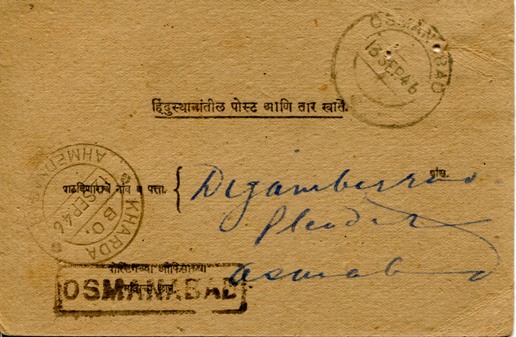 OSMANABAD
16 SEP 46
हिंदुस्थानांतील पोस्ट आणि तार खातें.
KHARDA
B.O.
SEP 46
पाठविणाराचें नांव व पत्ता.
Digamberrao
Pleader
Osmanabad
OSMANABAD